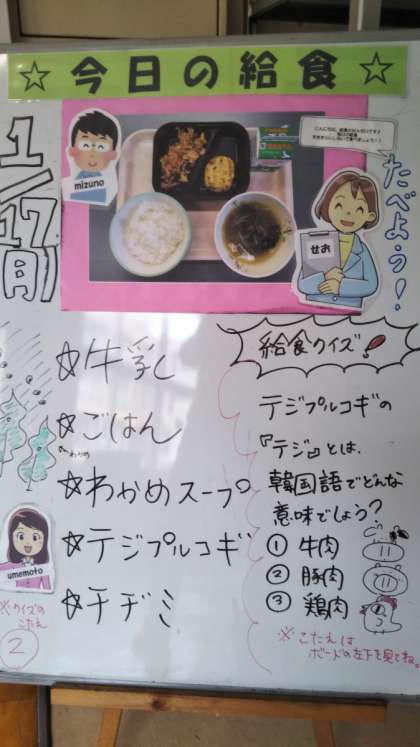 ☆ 今日の給食 ☆
1/17月
mizuno
せお
たべよう!
☆牛乳
☆ごはん
☆わかめスープ
☆テジプルコギ
☆チヂミ
umemoto
※クイズの
こたえ
②
給食クイズ!
テジプルコギの
『テジ』とは、
韓国語でどんな
意味でしょう?
① 牛肉
② 豚肉
③ 鶏肉
※こたえは
ボードの左下を見てね。